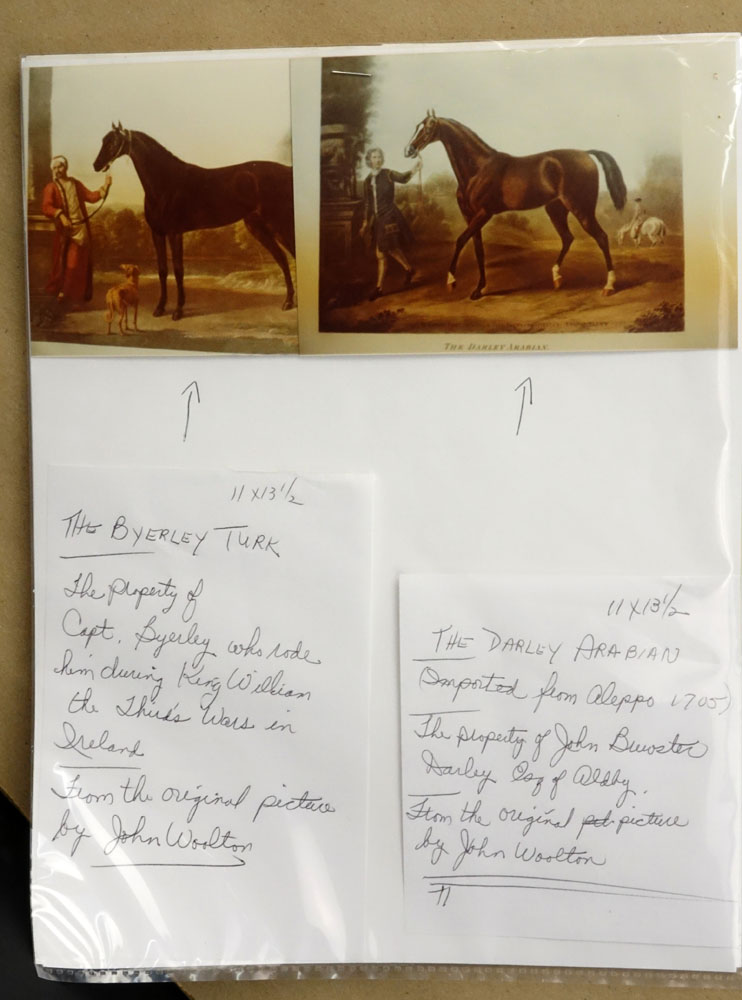 THE DARLEY ARABIAN.
11 x 13 1/2
THE BYERLEY TURK
The property of
Capt. Byerley who rode
him during King William
the Third's Wars in
Ireland
From the original picture
by John Woolton
11 x 13 1/2
THE DARLEY ARABIAN
(Imported from Aleppo 1705)
The property of John Brewster
Darley Esq of Aldby.
From the original picture
by John Woolton